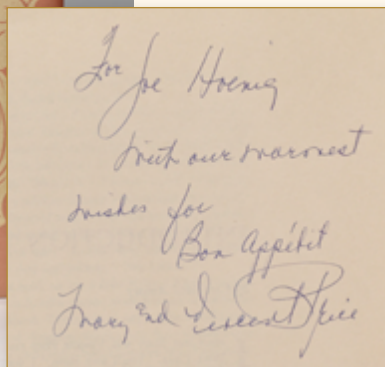 For
Joe Hoenig
With our warmest
wishes for
Bon Appétit
Mary and Vincent Price